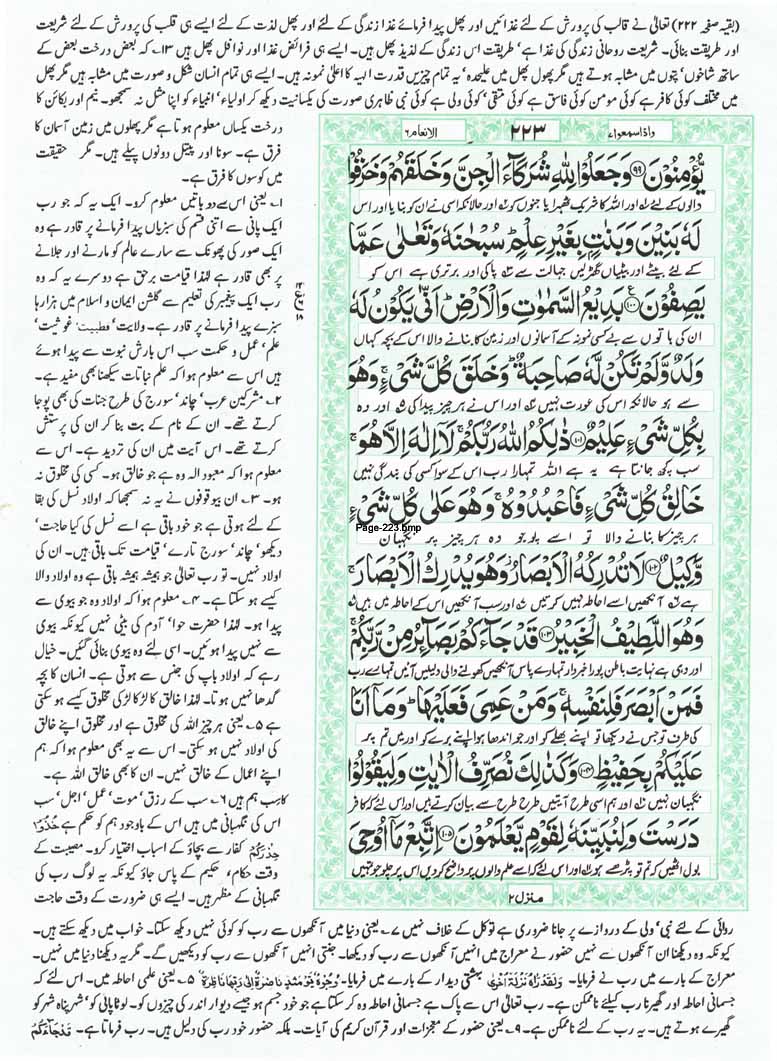 (بقیہ صفحہ ۲۲۲) تعالیٰ نے قالب کی پرورش کے لئے غذائیں اور پھل پیدا فرمائے غذا زندگی کے لئے اور پھل لذت کے لئے ایسے ہی قلب کی پرورش کے لئے شریعت
اور طریقت بنائی۔ شریعت روحانی زندگی کی غذا ہے، طریقت اس زندگی کے لذیذ پھل ہیں۔ ایسے ہی فرائض غذا اور نوافل پھل ہیں ۱۳۔ کہ بعض درخت بعض کے
ساتھ شاخوں، پتوں میں مشابہ ہوتے ہیں مگر پھول پھل میں علیحدہ، یہ تمام چیزیں قدرت الہیہ کا اعلیٰ نمونہ ہیں۔ ایسے ہی تمام انسان شکل و صورت میں مشابہ ہیں مگر
میں مختلف کوئی کافر ہے کوئی مومن کوئی فاسق ہے کوئی متقی، کوئی ولی ہے کوئی نبی ظاہری صورت کی یکسانیت دیکھ کر اولیاء، انبیاء کو اپنا مثل نہ سمجھو۔ نیم اور بکائن کا
درخت یکساں معلوم ہوتا ہے مگر پھلوں میں زمین آسمان کا
فرق ہے۔ سونا اور پیتل دونوں پیلے ہیں۔ مگر حقیقت
میں کوسوں کا فرق ہے۔
۱۔ یعنی اس سے دو باتیں معلوم کرو۔ ایک یہ کہ جو رب
ایک پانی سے اتنی قسم کی سبزیاں پیدا فرمانے پر قادر ہے وہ
ایک صور کی پھونک سے سارے عالم کو مارنے اور جلانے
پر بھی قادر ہے لہٰذا قیامت برحق ہے دوسرے یہ کہ وہ
رب ایک پیغمبر کی تعلیم سے گلشن ایمان و اسلام میں ہزارہا
سبزے پیدا فرمانے پر قادر ہے۔ ولایت، قطبیت، غوثیت،
علم، عمل و حکمت سب اس بارش نبوت سے پیدا ہوئے
ہیں اس سے معلوم ہوا کہ علم نباتات سیکھنا بھی مفید ہے۔
۲۔ مشرکین عرب، چاند، سورج کی طرح جنات کی بھی پوجا
کرتے تھے۔ ان کے نام کے بت بنا کر ان کی پرستش
کرتے تھے۔ اس آیت میں ان کی تردید ہے۔ اس سے
معلوم ہوا کہ معبود الہ وہ ہے جو خالق ہو۔ کسی کی مخلوق نہ
ہو۔ ۳۔ ان بیوقوفوں نے یہ نہ سمجھا کہ اولاد نسل کی بقا
کے لئے ہوتی ہے جو خود باقی ہے اسے نسل کی کیا حاجت،
دیکھو، چاند، سورج تارے، قیامت تک باقی ہیں۔ ان کی
اولاد نہیں۔ تو رب تعالیٰ جو ہمیشہ ہمیشہ باقی ہے وہ اولاد والا
کیسے ہو سکتا ہے۔ ۴۔ معلوم ہوا کہ اولاد وہ جو بیوی سے
پیدا ہو۔ لہٰذا حضرت حوا، آدم کی بیٹی نہیں کیونکہ بیوی
سے نہیں پیدا ہوئیں۔ اسی لئے وہ بیوی بنائی گئیں۔ خیال
رہے کہ اولاد باپ کی جنس سے ہوتی ہے۔ انسان کا بچہ
گدھا نہیں ہوتا۔ لہٰذا خالق کا لڑکا لڑکی مخلوق کیسے ہو سکتی
ہے ۵۔ یعنی ہر چیز اللہ کی مخلوق ہے اور مخلوق اپنے خالق
کی اولاد نہیں ہو سکتی۔ اس سے یہ بھی معلوم ہوا کہ ہم
اپنے اعمال کے خالق نہیں۔ ان کا بھی خالق اللہ ہے۔
کاسب ہم ہیں ۶۔ سب کے رزق، موت، عمل، اجل، سب
اس کی نگہبانی میں ہیں اس کے باوجود ہم کو حکم ہے خُذُوْا
حِذْرَكُمْ کفار سے بچاؤ کے اسباب اختیار کرو۔ مصیبت کے
وقت حکام، حکیم کے پاس جاؤ کیونکہ یہ لوگ رب کی
نگہبانی کے مظہر ہیں۔ ایسے ہی ضرورت کے وقت حاجت
واذا سمعوا ۷
۲۲۳
الانعام ۶
يُّؤْمِنُوْنَ ۹۹ وَجَعَلُوْا لِلّٰهِ شُرَكَآءَ الْجِنَّ وَخَلَقَهُمْ وَخَرَقُوْا
والوں کے لئے اور اللہ کا شریک ٹھہرایا جنوں کو حالانکہ اسی نے ان کو بنایا اور اس
لَهٗ بَنِيْنَ وَبَنٰتٍ بِغَيْرِ عِلْمٍ سُبْحٰنَهٗ وَتَعٰلٰى عَمَّا
کے لئے بیٹے اور بیٹیاں گھڑلیں جہالت سے پاکی اور برتری ہے اس کو
يَصِفُوْنَ ۱۰۰ بَدِيْعُ السَّمٰوٰتِ وَالْاَرْضِ اَنّٰى يَكُوْنُ لَهٗ
ان کی باتوں سے بے کسی نمونہ کے آسمانوں اور زمین کا بنانے والا اس کے بچہ کہاں
وَلَدٌ وَّلَمْ تَكُنْ لَّهٗ صَاحِبَةٌ وَخَلَقَ كُلَّ شَيْءٍ وَهُوَ
سے ہو حالانکہ اس کی عورت نہیں اور اس نے ہر چیز پیدا کی اور وہ
بِكُلِّ شَيْءٍ عَلِيْمٌ ۱۰۱ ذٰلِكُمُ اللّٰهُ رَبُّكُمْ لَآ اِلٰهَ اِلَّا هُوَ
سب کچھ جانتا ہے یہ ہے اللہ تمہارا رب اس کے سوا کسی کی بندگی نہیں
خَالِقُ كُلِّ شَيْءٍ فَاعْبُدُوْهُ وَهُوَ عَلٰى كُلِّ شَيْءٍ
Page-223.bmp
ہر چیز کا بنانے والا تو اسے پوجو وہ ہر چیز پر نگہبان
وَّكِيْلٌ ۱۰۲ لَا تُدْرِكُهُ الْاَبْصَارُ وَهُوَ يُدْرِكُ الْاَبْصَارَ
ہے آنکھیں اسے احاطہ نہیں کرتیں اور سب آنکھیں اس کے احاطہ میں ہیں
وَهُوَ اللَّطِيْفُ الْخَبِيْرُ ۱۰۳ قَدْ جَآءَكُمْ بَصَآئِرُ مِنْ رَّبِّكُمْ
اور وہی ہے نہایت باطن پورا خبردار تمہارے پاس آنکھیں کھولنے والی دلیلیں آئیں تمہارے رب
فَمَنْ اَبْصَرَ فَلِنَفْسِهٖ وَمَنْ عَمِيَ فَعَلَيْهَا وَمَآ اَنَا
کی طرف تو جس نے دیکھا تو اپنے بھلے کو اور جو اندھا ہوا اپنے برے کو اور میں تم پر
عَلَيْكُمْ بِحَفِيْظٍ ۱۰۴ وَكَذٰلِكَ نُصَرِّفُ الْاٰيٰتِ وَلِيَقُوْلُوْا
نگہبان نہیں اور ہم اسی طرح آیتیں طرح طرح سے بیان کرتے ہیں اور اس لئے کہ کافر
دَرَسْتَ وَلِنُبَيِّنَهٗ لِقَوْمٍ يَّعْلَمُوْنَ ۱۰۵ اِتَّبِعْ مَآ اُوْحِيَ
بول اٹھیں کہ تم تو پڑھے ہو اور اس لئے کہ اسے علم والوں پر واضح کردیں اس پر چلو جو تمہیں
منزل ۲
روائی کے لئے نبی، ولی کے دروازے پر جانا ضروری ہے تو کل کے خلاف نہیں ۷۔ یعنی دنیا میں آنکھوں سے رب کو کوئی نہیں دیکھ سکتا۔ خواب میں دیکھ سکتے ہیں۔
کیونکہ وہ دیکھنا ان آنکھوں سے نہیں حضور نے معراج میں انہیں آنکھوں سے رب کو دیکھا۔ جنتی انہیں آنکھوں سے رب کو دیکھیں گے۔ مگر یہ دیکھنا دنیا میں نہیں۔
معراج کے بارے میں رب نے فرمایا۔ وَلَقَدْ رَاٰهُ نَزْلَةً اُخْرٰى بہشتی دیدار کے بارے میں فرمایا۔ وُجُوْهٌ يَّوْمَئِذٍ نَّاضِرَةٌ اِلٰى رَبِّهَا نَاظِرَةٌ ۸۔ یعنی علمی احاطہ میں۔ اس لئے کہ
جسمانی احاطہ اور گھیرنا رب کیلئے ناممکن ہے۔ رب تعالیٰ اس سے پاک ہے جسمانی احاطہ وہ کر سکتا ہے جو خود جسم ہو جیسے دیوار اندر کی چیزوں کو۔ لوٹا پانی کو، شہرپناہ شہر کو
گھیرے ہوتے ہیں۔ یہ رب کے لئے ناممکن ہے۔ ۹۔ یعنی حضور کے معجزات اور قرآن کریم کی آیات۔ بلکہ حضور خود رب کی دلیل ہیں۔ رب فرماتا ہے۔ قَدْ جَآءَكُمْ